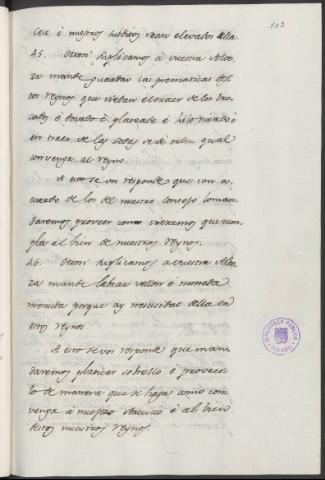 103
Cese é nuestros subditos sean relevados della.
45. Otrosi suplicamos á vuestra Alte-
za mande guardar las prematicas des-
tos reynos que vedan el traer de los bro-
cados é dorado é plateado é hilo tirado é
en traer de las sedas se dé orden qual
convenga al reyno.
A esto se vos responde que con a-
cuerdo de los del nuestro consejo man-
daremos proveer como vieremos que cum-
pla al bien de nuestros reynos.
46. Otrosi suplicamos a vuestra Alte-
za mande labrar vellon é moneda
menuda porque ay necesidad della en
estos reynos.
A esto se vos responde que man-
daremos platicar sobrello é proveer-
lo de manera que se haga como con-
venga á nuestro servicio é al bien
destos nuestros reynos.
BIBLIOTECA PUBLICA
TOLEDO